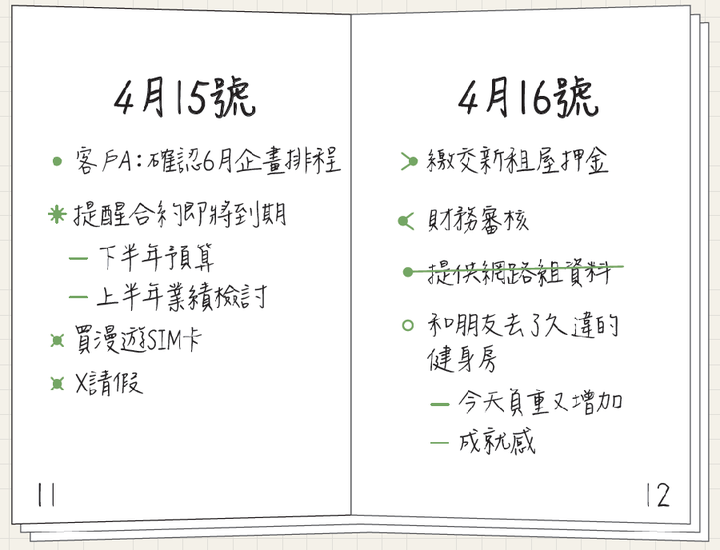 4月15號
客戶A:確認6月企畫排程
提醒合約即將到期
下半年預算
上半年業績檢討
買漫遊SIM卡
X請假
11
4月16號
繳交新租屋押金
財務審核
提供網路組資料
和朋友去了久違的
健身房
今天負重又增加
成就感
12